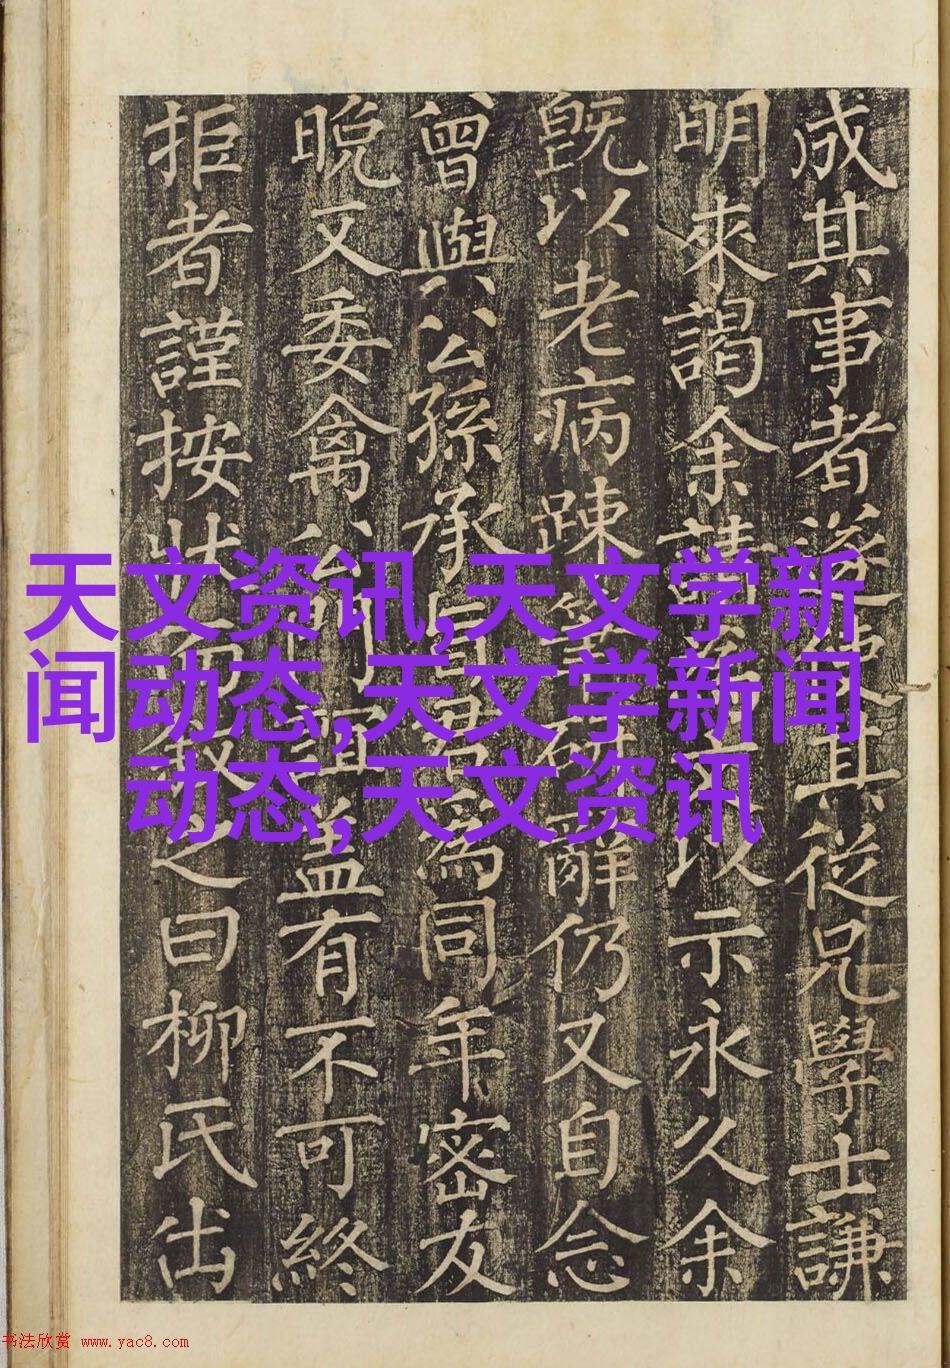 成其事者遂其從兄學士謙
明來謁余請文以示永久余
既以老病踈筆研辭仍又自念
曾與公孫承旨為同年密友
晚又委禽公門且盖有不可終
拒者謹按状而叙之曰柳氏出
天文资讯,天文学新
闻动态,天文学新闻
动态,天文资讯
书法欣赏 www.yac8.com